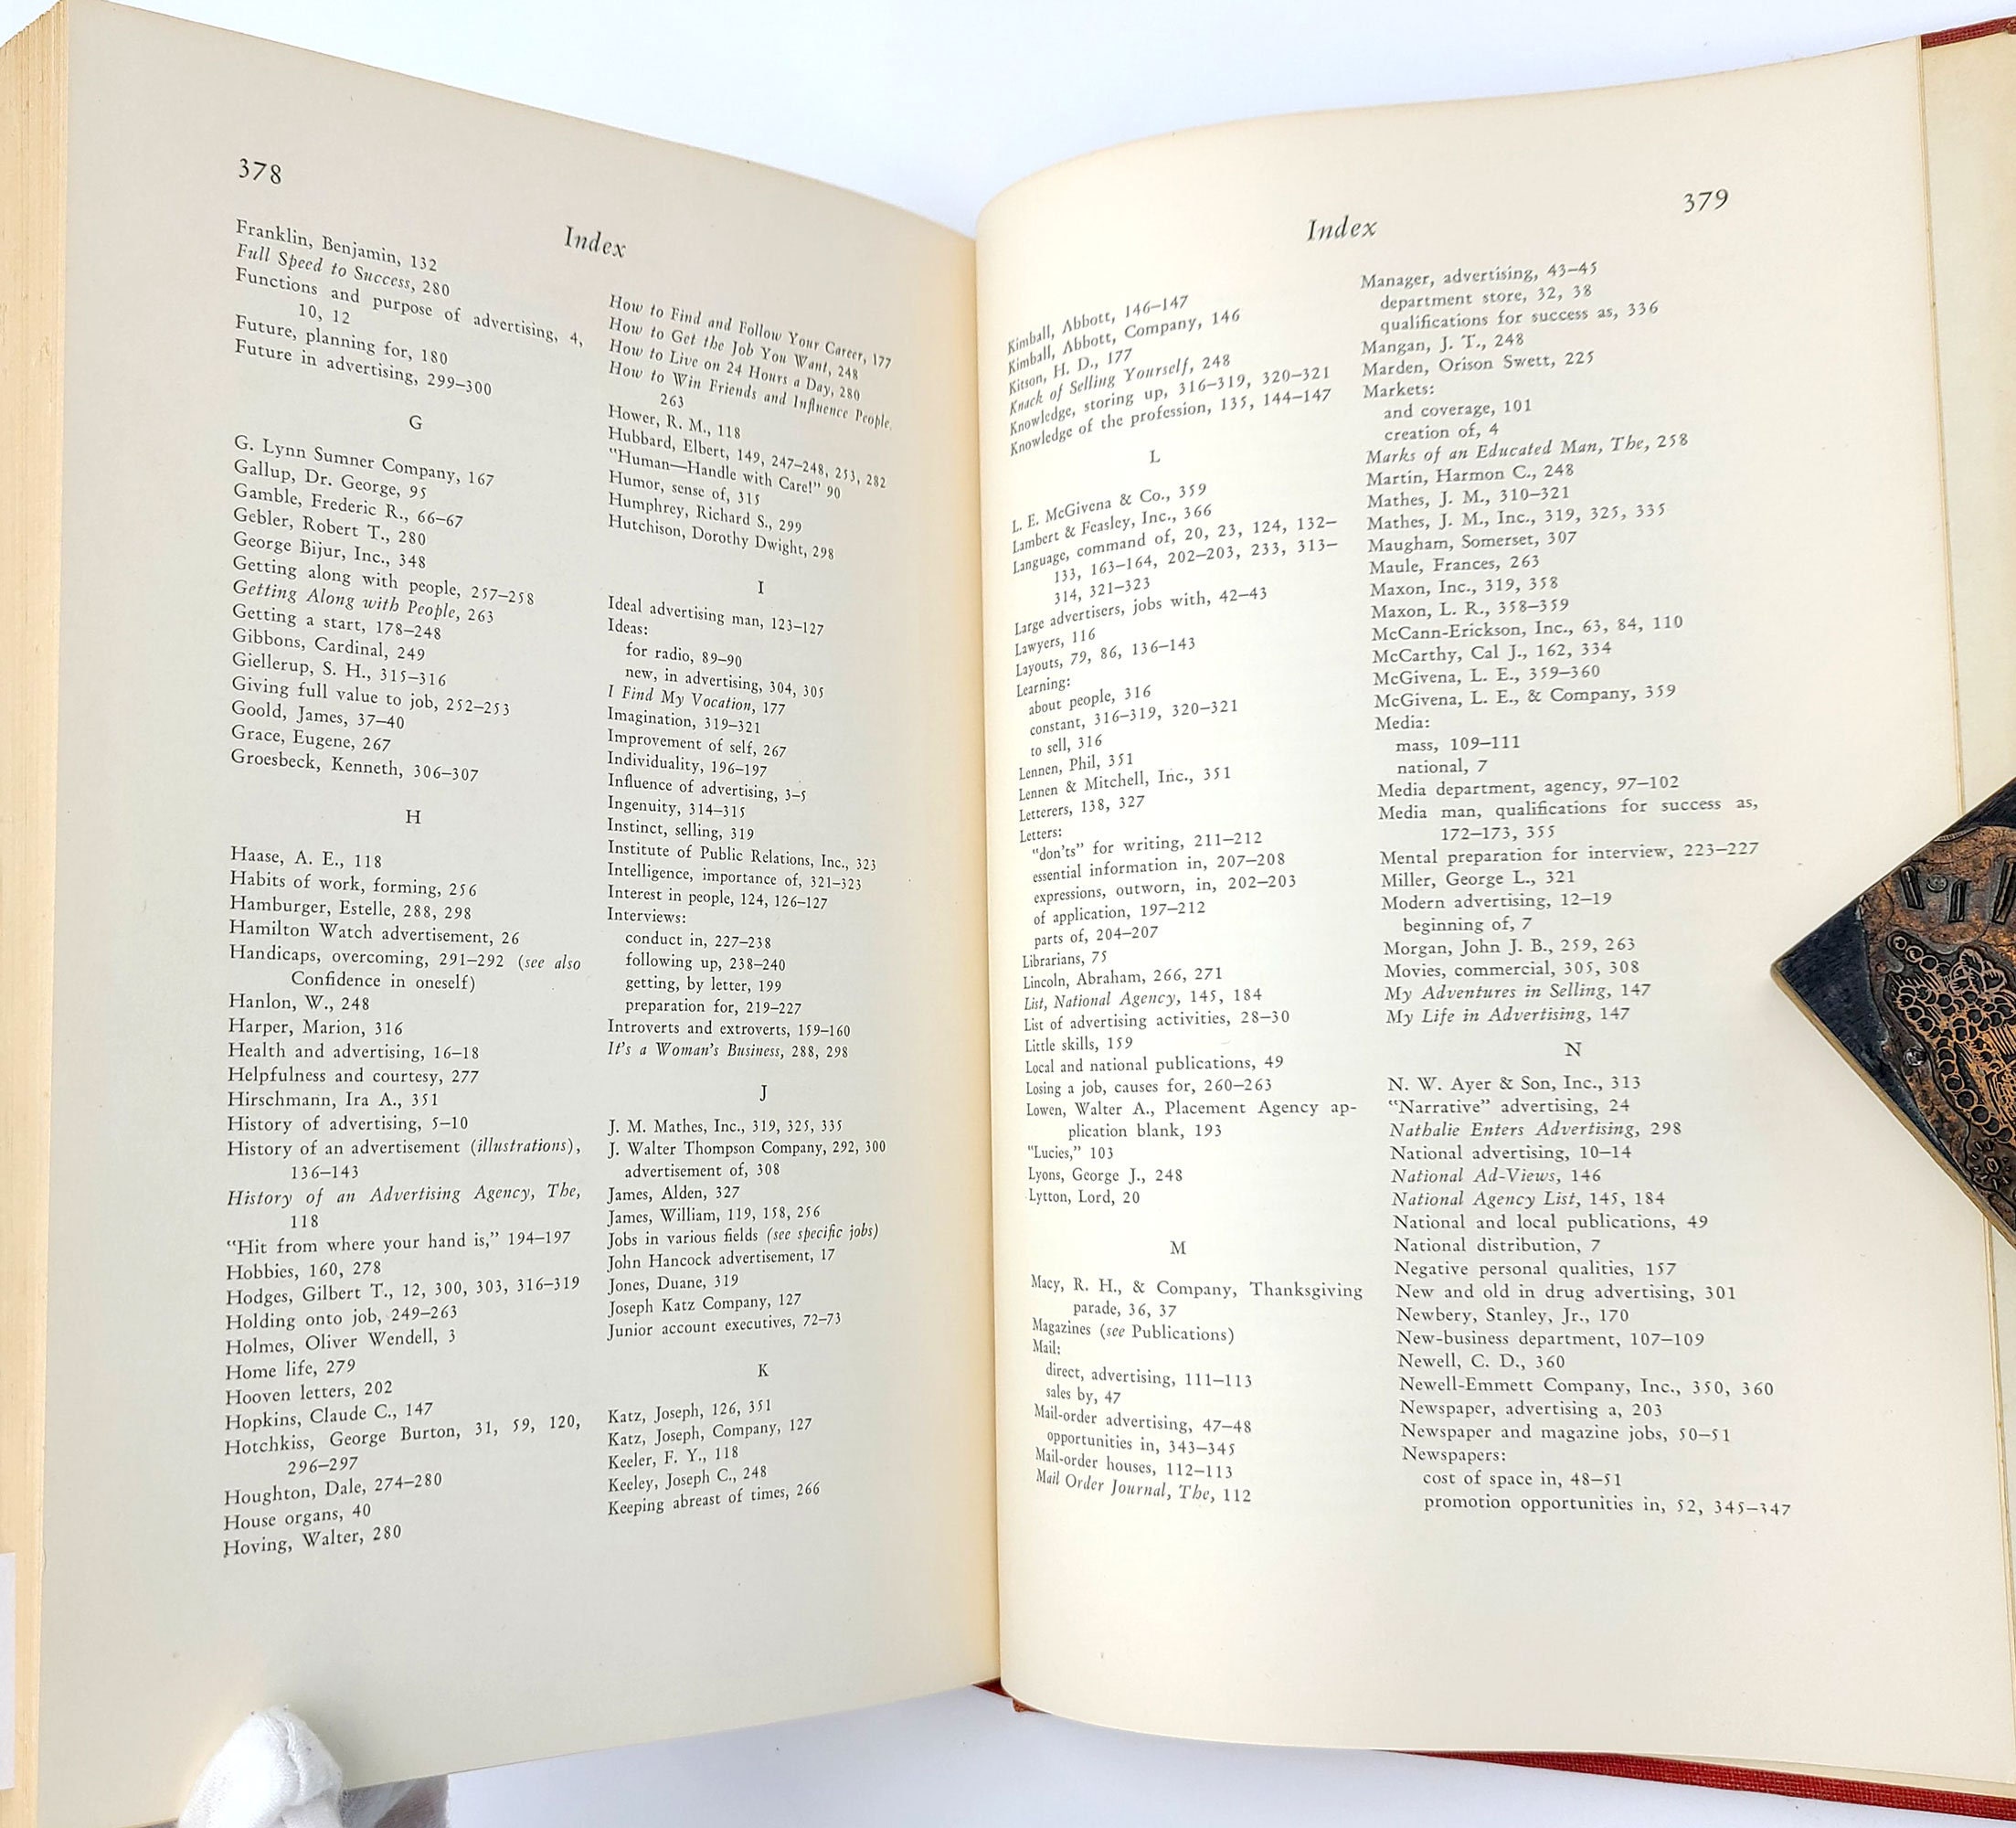 378
Index
Franklin, Benjamin, 132
Full Speed to Success, 280
Functions and purpose of advertising, 4,
10, 12
Future, planning for, 180
Future in advertising, 299–300
G
G. Lynn Sumner Company, 167
Gallup, Dr. George, 95
Gamble, Frederic R., 66–67
Gebler, Robert T., 280
George Bijur, Inc., 348
Getting along with people, 257–258
Getting Along with People, 263
Getting a start, 178–248
Gibbons, Cardinal, 249
Giellerup, S. H., 315–316
Giving full value to job, 252–253
Goold, James, 37–40
Grace, Eugene, 267
Groesbeck, Kenneth, 306–307
H
Haase, A. E., 118
Habits of work, forming, 256
Hamburger, Estelle, 288, 298
Hamilton Watch advertisement, 26
Handicaps, overcoming, 291–292 (see also
Confidence in oneself)
Hanlon, W., 248
Harper, Marion, 316
Health and advertising, 16–18
Helpfulness and courtesy, 277
Hirschmann, Ira A., 351
History of advertising, 5–10
History of an advertisement (illustrations),
136–143
History of an Advertising Agency, The,
118
"Hit from where your hand is," 194–197
Hobbies, 160, 278
Hodges, Gilbert T., 12, 300, 303, 316–319
Holding onto job, 249–263
Holmes, Oliver Wendell, 3
Home life, 279
Hooven letters, 202
Hopkins, Claude C., 147
Hotchkiss, George Burton, 31, 59, 120,
296–297
Houghton, Dale, 274–280
House organs, 40
Hoving, Walter, 280
How to Find and Follow Your Career, 177
How to Get the Job You Want, 248
How to Live on 24 Hours a Day, 280
How to Win Friends and Influence People,
263
Hower, R. M., 118
Hubbard, Elbert, 149, 247–248, 253, 282
"Human—Handle with Care!" 90
Humor, sense of, 315
Humphrey, Richard S., 299
Hutchison, Dorothy Dwight, 298
I
Ideal advertising man, 123–127
Ideas:
for radio, 89–90
new, in advertising, 304, 305
I Find My Vocation, 177
Imagination, 319–321
Improvement of self, 267
Individuality, 196–197
Influence of advertising, 3–5
Ingenuity, 314–315
Instinct, selling, 319
Institute of Public Relations, Inc., 323
Intelligence, importance of, 321–323
Interest in people, 124, 126–127
Interviews:
conduct in, 227–238
following up, 238–240
getting, by letter, 199
preparation for, 219–227
Introverts and extroverts, 159–160
It's a Woman's Business, 288, 298
J
J. M. Mathes, Inc., 319, 325, 335
J. Walter Thompson Company, 292, 300
advertisement of, 308
James, Alden, 327
James, William, 119, 158, 256
Jobs in various fields (see specific jobs)
John Hancock advertisement, 17
Jones, Duane, 319
Joseph Katz Company, 127
Junior account executives, 72–73
K
Katz, Joseph, 126, 351
Katz, Joseph, Company, 127
Keeler, F. Y., 118
Keeley, Joseph C., 248
Keeping abreast of times, 266
379
Index
Kimball, Abbott, 146–147
Kimball, Abbott, Company, 146
Kitson, H. D., 177
Knack of Selling Yourself, 248
Knowledge, storing up, 316–319, 320–321
Knowledge of the profession, 135, 144–147
L
L. E. McGivena & Co., 359
Lambert & Feasley, Inc., 366
Language, command of, 20, 23, 124, 132–
133, 163–164, 202–203, 233, 313–
314, 321–323
Large advertisers, jobs with, 42–43
Lawyers, 116
Layouts, 79, 86, 136–143
Learning:
about people, 316
constant, 316–319, 320–321
to sell, 316
Lennen, Phil, 351
Lennen & Mitchell, Inc., 351
Letterers, 138, 327
Letters:
"don'ts" for writing, 211–212
essential information in, 207–208
expressions, outworn, in, 202–203
of application, 197–212
parts of, 204–207
Librarians, 75
Lincoln, Abraham, 266, 271
List, National Agency, 145, 184
List of advertising activities, 28–30
Little skills, 159
Local and national publications, 49
Losing a job, causes for, 260–263
Lowen, Walter A., Placement Agency ap-
plication blank, 193
"Lucies," 103
Lyons, George J., 248
Lytton, Lord, 20
M
Macy, R. H., & Company, Thanksgiving
parade, 36, 37
Magazines (see Publications)
Mail:
direct, advertising, 111–113
sales by, 47
Mail-order advertising, 47–48
opportunities in, 343–345
Mail-order houses, 112–113
Mail Order Journal, The, 112
Manager, advertising, 43–45
department store, 32, 38
qualifications for success as, 336
Mangan, J. T., 248
Marden, Orison Swett, 225
Markets:
and coverage, 101
creation of, 4
Marks of an Educated Man, The, 258
Martin, Harmon C., 248
Mathes, J. M., 310–321
Mathes, J. M., Inc., 319, 325, 335
Maugham, Somerset, 307
Maule, Frances, 263
Maxon, Inc., 319, 358
Maxon, L. R., 358–359
McCann-Erickson, Inc., 63, 84, 110
McCarthy, Cal J., 162, 334
McGivena, L. E., 359–360
McGivena, L. E., & Company, 359
Media:
mass, 109–111
national, 7
Media department, agency, 97–102
Media man, qualifications for success as,
172–173, 355
Mental preparation for interview, 223–227
Miller, George L., 321
Modern advertising, 12–19
beginning of, 7
Morgan, John J. B., 259, 263
Movies, commercial, 305, 308
My Adventures in Selling, 147
My Life in Advertising, 147
N
N. W. Ayer & Son, Inc., 313
"Narrative" advertising, 24
Nathalie Enters Advertising, 298
National advertising, 10–14
National Ad-Views, 146
National Agency List, 145, 184
National and local publications, 49
National distribution, 7
Negative personal qualities, 157
New and old in drug advertising, 301
Newbery, Stanley, Jr., 170
New-business department, 107–109
Newell, C. D., 360
Newell-Emmett Company, Inc., 350, 360
Newspaper, advertising a, 203
Newspaper and magazine jobs, 50–51
Newspapers:
cost of space in, 48–51
promotion opportunities in, 52, 345–347